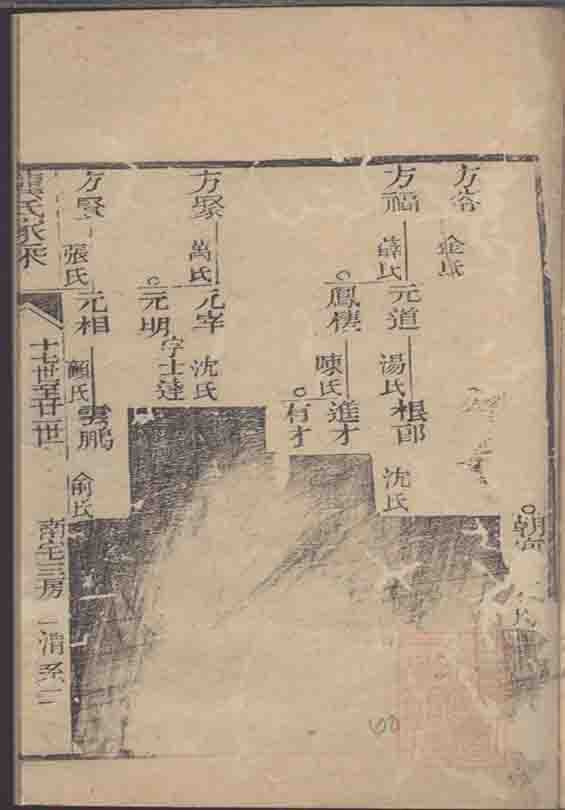 朝
方
金氏
方福
薛氏
元道
湯氏
根郎
沈氏
鳳棲
陳氏
進才
有才
方聚
萬氏
元宰
沈氏
元明
字士達
方賢
張氏
元相
顧氏
雲鵬
俞氏
氏家乘
十七世至廿一世
南宅三房
清系一
60